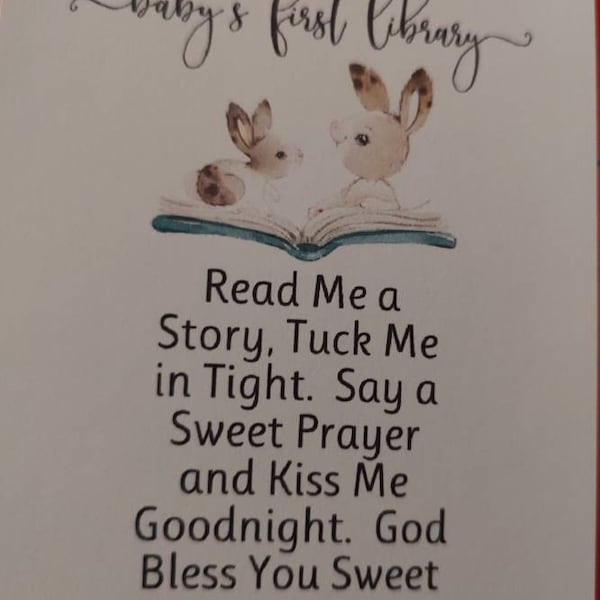 baby's first library
Read Me a
Story, Tuck Me
in Tight.  Say a
Sweet Prayer
and Kiss Me
Goodnight.  God
Bless You Sweet